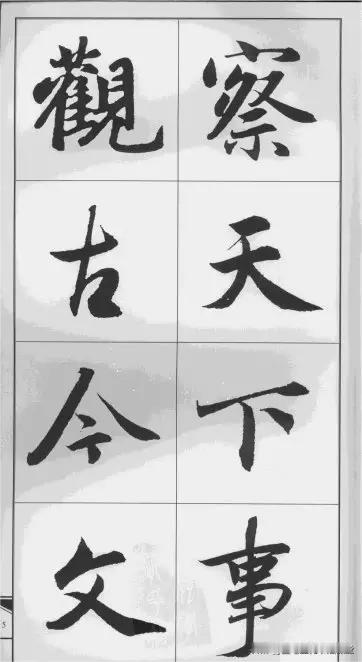 察天下事
觀古今文
5